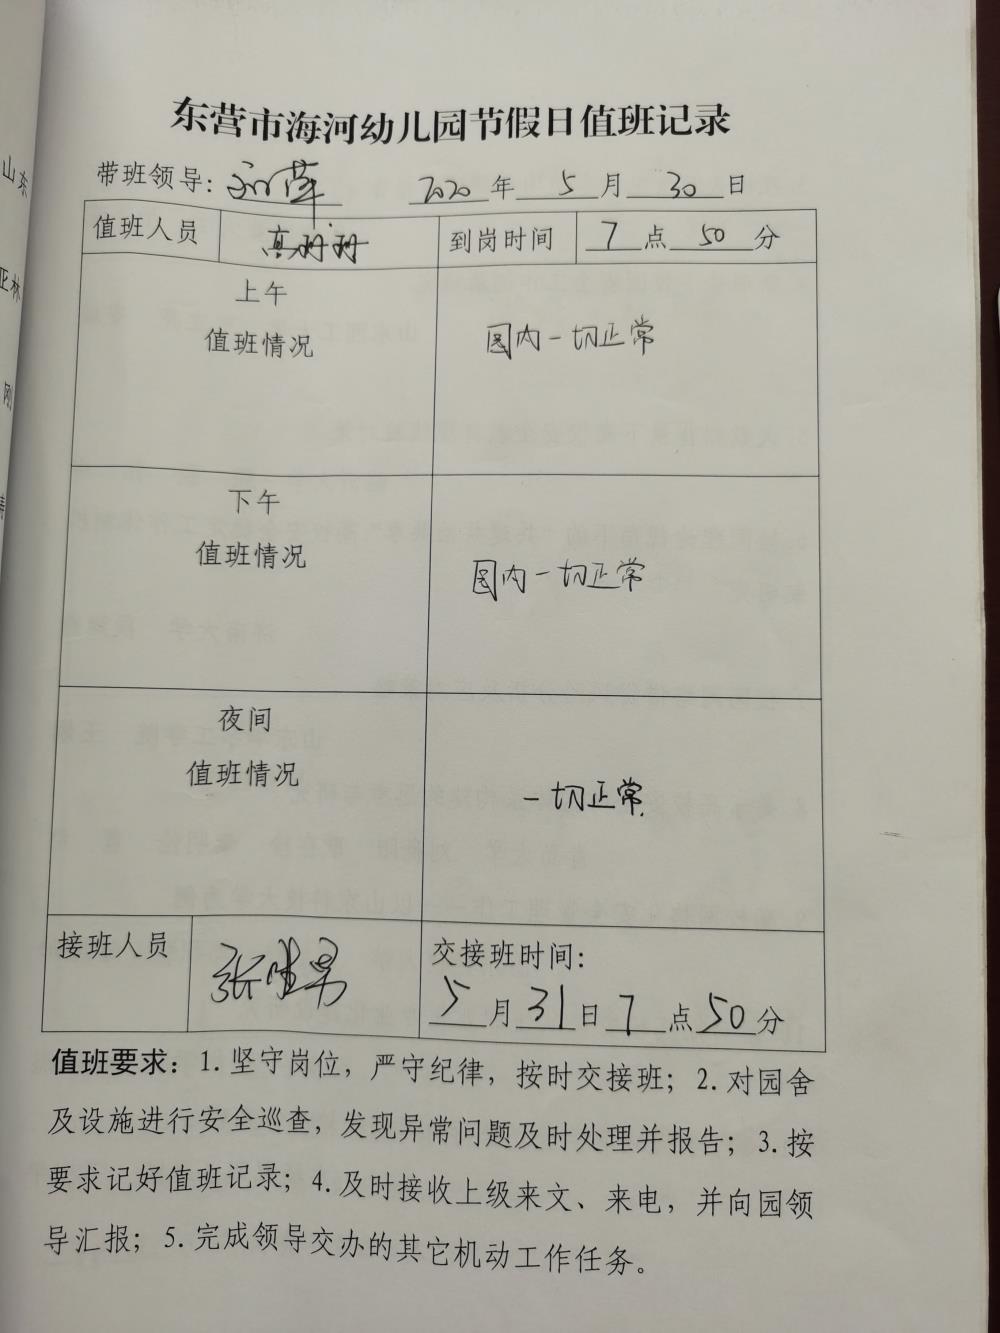 东营市海河幼儿园节假日值班记录
带班领导: 刘萍 2020 年 5 月 30 日
值班人员 高丹丹 到岗时间 7 点 50 分
上午
值班情况
园内一切正常
下午
值班情况
园内一切正常
夜间
值班情况
一切正常.
接班人员 张胜男 交接班时间:
5 月 31 日 7 点 50 分
值班要求: 1. 坚守岗位, 严守纪律, 按时交接班; 2. 对园舍
及设施进行安全巡查, 发现异常问题及时处理并报告; 3. 按
要求记好值班记录; 4. 及时接收上级来文、来电, 并向园领
导汇报; 5. 完成领导交办的其它机动工作任务。
山东
亚林
刚